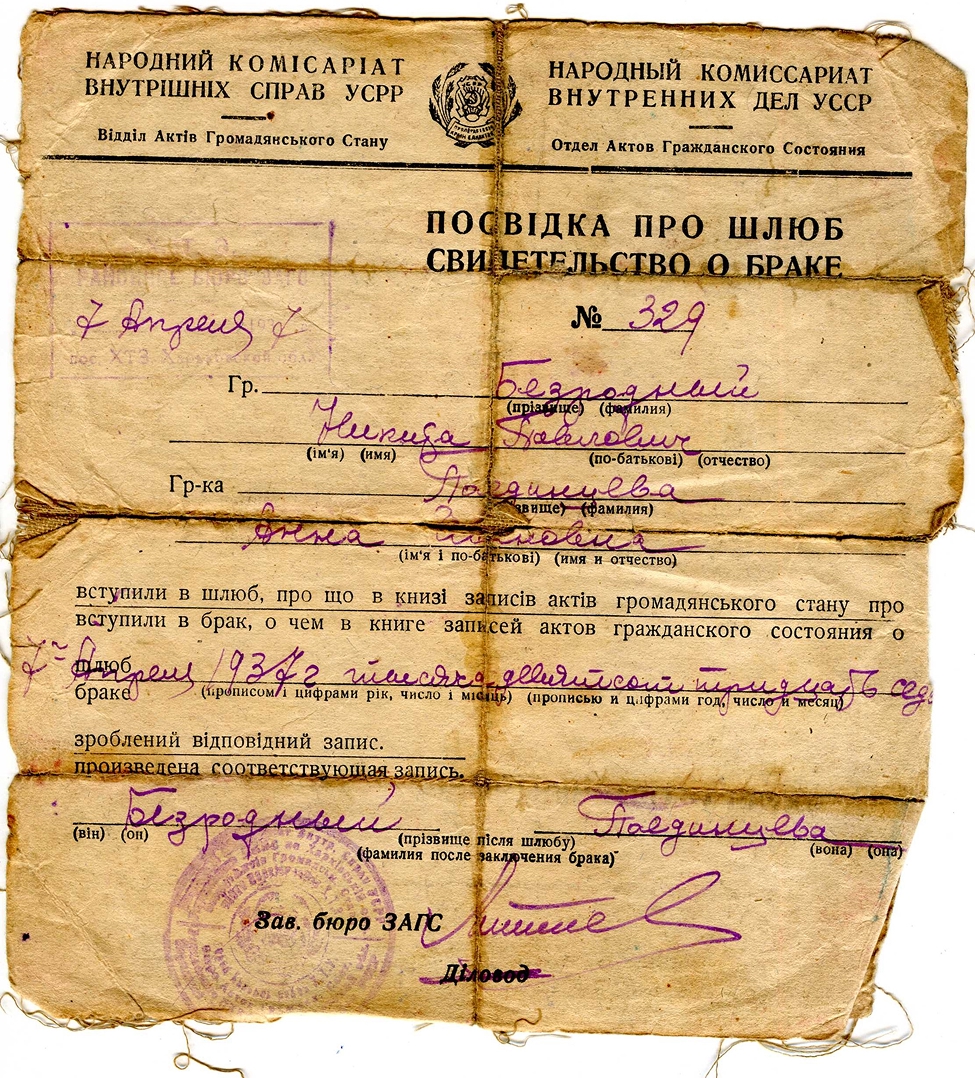 НАРОДНИЙ КОМІСАРІАТ
ВНУТРІШНІХ СПРАВ УСРР
Відділ Актів Громадянського Стану
НАРОДНЫЙ КОМИССАРИАТ
ВНУТРЕННИХ ДЕЛ УССР
Отдел Актов Гражданского Состояния
ПОСВІДКА ПРО ШЛЮБ
СВИДЕТЕЛЬСТВО О БРАКЕ
7 Апреля 7
пос. ХТЗ
№ 329
Гр. Безродный
(прізвище) (фамилия)
Никита Павлович
(ім'я) (имя) (по-батькові) (отчество)
Гр-ка Поединцева
(фамилия)
Анна
(ім'я і по-батькові) (имя и отчество)
вступили в шлюб, про що в книзі записів актів громадянського стану про
вступили в брак, о чем в книге записей актов гражданского состояния о
шлюб
7 Апреля 1937 г тысяча девятсот тридцать седь
браке (прописом і цифрами рік, число і місяць) (прописью и цифрами год, число и месяц)
зроблений відповідний запис.
произведена соответствующая запись.
Безродный Поединцева
(він) (он) (прізвище після шлюбу) (вона) (она)
(фамилия после заключения брака)
Зав. бюро ЗАГС
Діловод